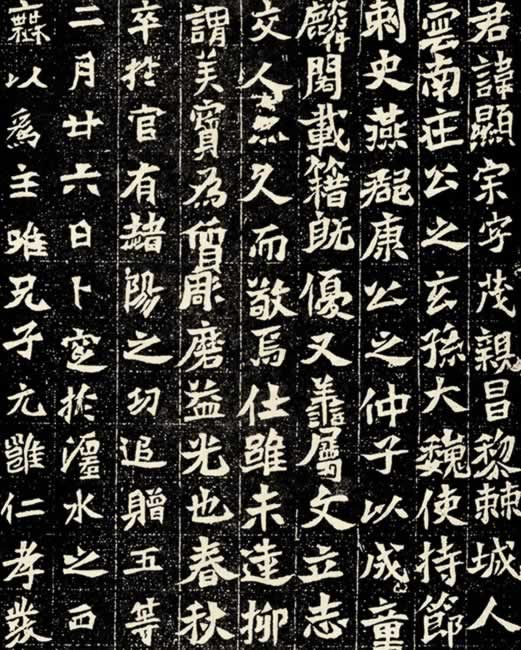 君諱顯宗字茂親昌黎棘城人
雲南莊公之玄孫大魏使持節
刺史燕郡康公之仲子以成童
麟閣載籍既優又善屬文立志
交人無久而敬焉仕雖未達抑
謂美寶為質彫磨益光也春秋
卒於官有赭陽之功追贈五等
二月廿六日卜窆於瀍水之西
以為主唯兄子元雍仁孝發